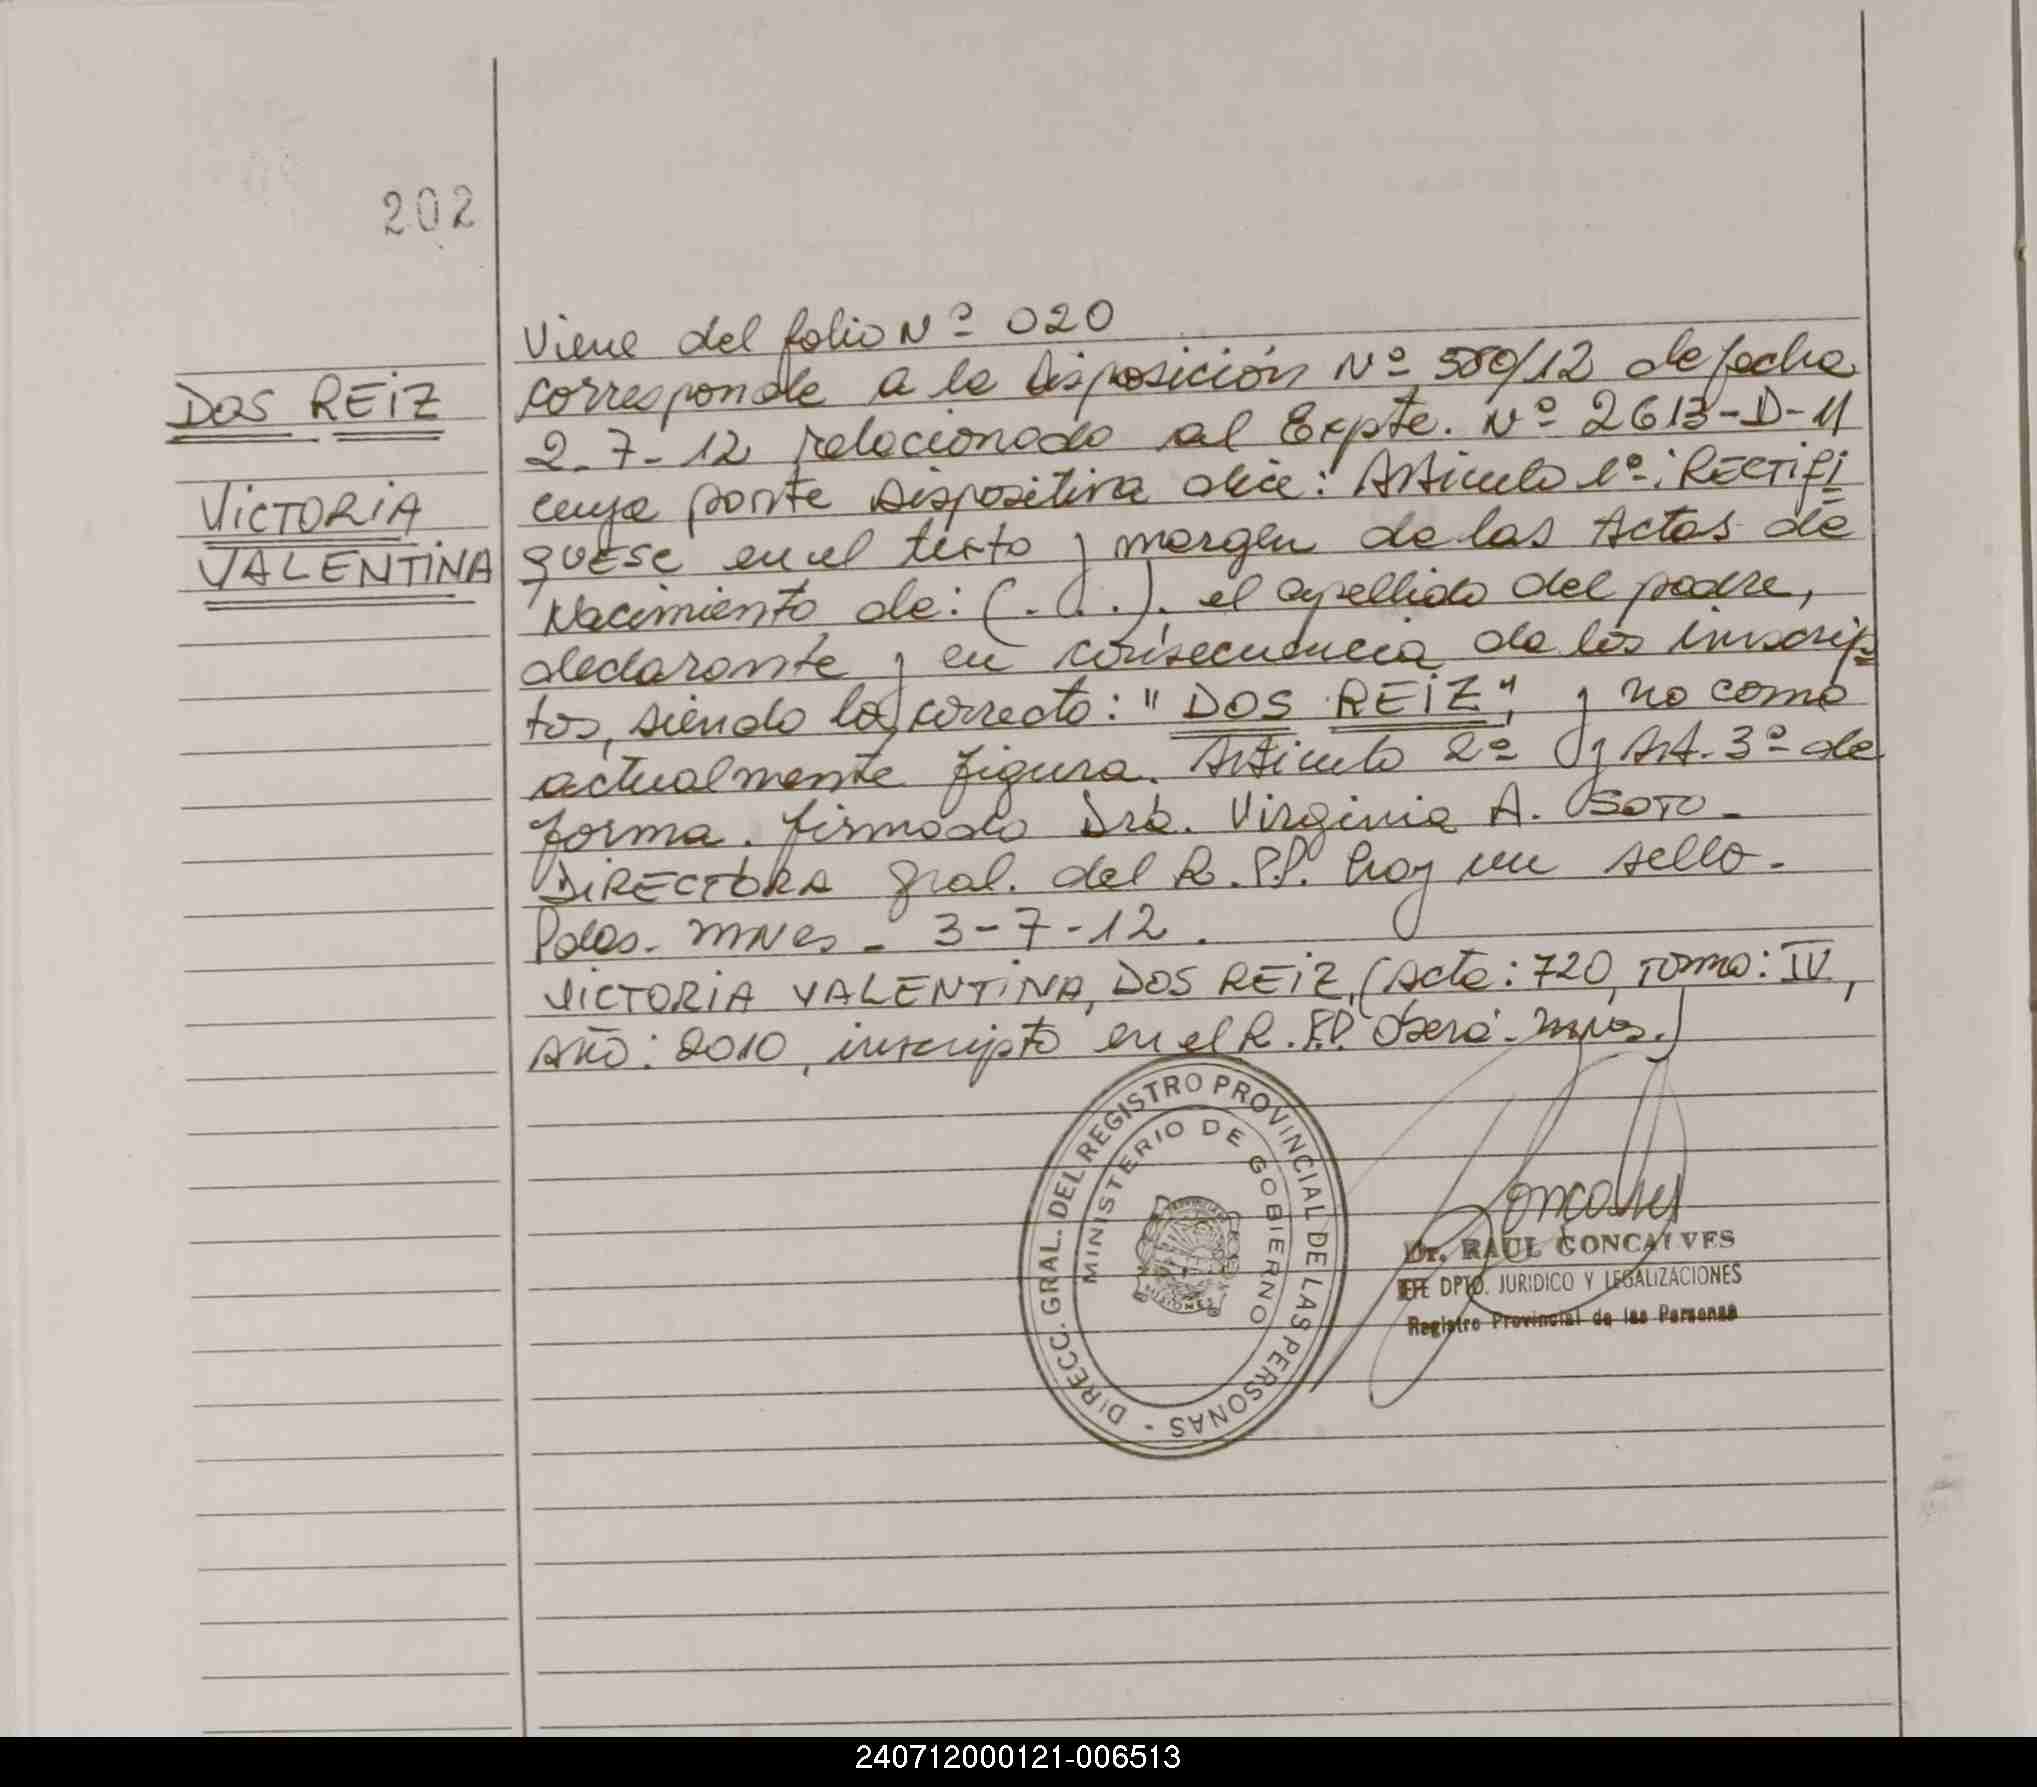 202
DOS REIZ
VICTORIA
VALENTINA
Viene del folio Nº 020
corresponde a la Disposición Nº 580/12 de fecha
2-7-12 relacionado al Expte. Nº 2613-D-11
cuya parte dispositiva dice: Articulo 1º: RECTIFI
QUESE en el texto y margen de las Actas de
Nacimiento de: (...), el apellido del padre,
declarante y en consecuencia de los inscrip
tos, siendo lo correcto: "DOS REIZ", y no como
actualmente figura. Articulo 2º y Art. 3º de
forma. firmado Dra. Virginia A. SOTO -
DIRECTORA Gral. del R.P.P. hay un sello -
Pdas. MNes - 3-7-12.
VICTORIA VALENTINA, DOS REIZ, (Acta: 720, Tomo: IV,
AÑO: 2010, inscripto en el R.P.P. Oberá - Mnes.)
DIRECC. GRAL. DEL REGISTRO PROVINCIAL DE LAS PERSONAS -
MINISTERIO DE GOBIERNO
MISIONES
Dr. RAUL GONCALVES
JEFE DPTO. JURIDICO Y LEGALIZACIONES
Registro Provincial de las Personas
240712000121-006513